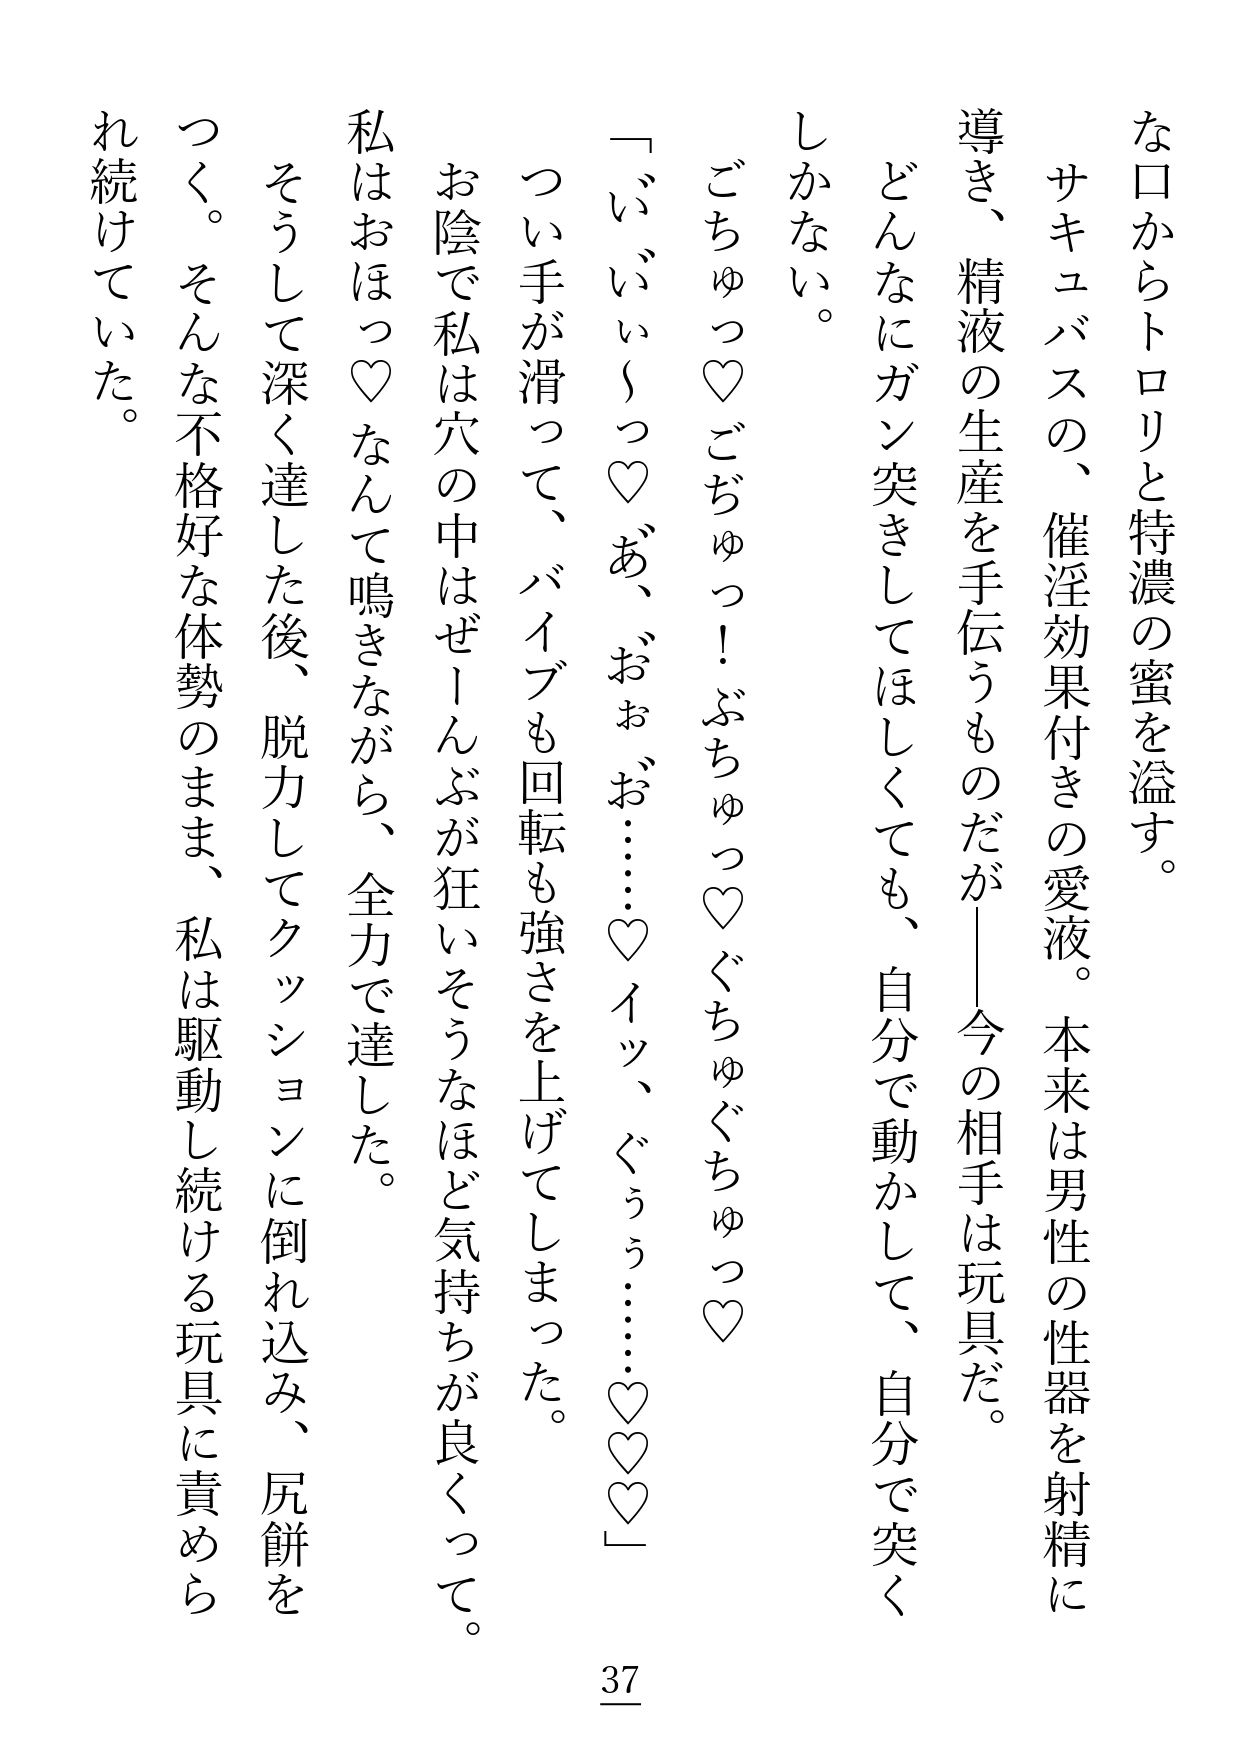 な口からトロリと特濃の蜜を溢す。
　サキュバスの、催淫効果付きの愛液。本来は男性の性器を射精に
導き、精液の生産を手伝うものだが――今の相手は玩具だ。
　どんなにガン突きしてほしくても、自分で動かして、自分で突く
しかない。
　ごちゅっ♡ごぢゅっ！ぶちゅっ♡ぐちゅぐちゅっ♡
「い゛い゛ぃ～っ♡あ゛、お゛ぉお゛……♡イッ、ぐぅぅ……♡♡♡」
　つい手が滑って、バイブも回転も強さを上げてしまった。
　お陰で私は穴の中はぜーんぶが狂いそうなほど気持ちが良くって。
私はおほっ♡なんて鳴きながら、全力で達した。
　そうして深く達した後、脱力してクッションに倒れ込み、尻餅を
つく。そんな不格好な体勢のまま、私は駆動し続ける玩具に責めら
れ続けていた。
37